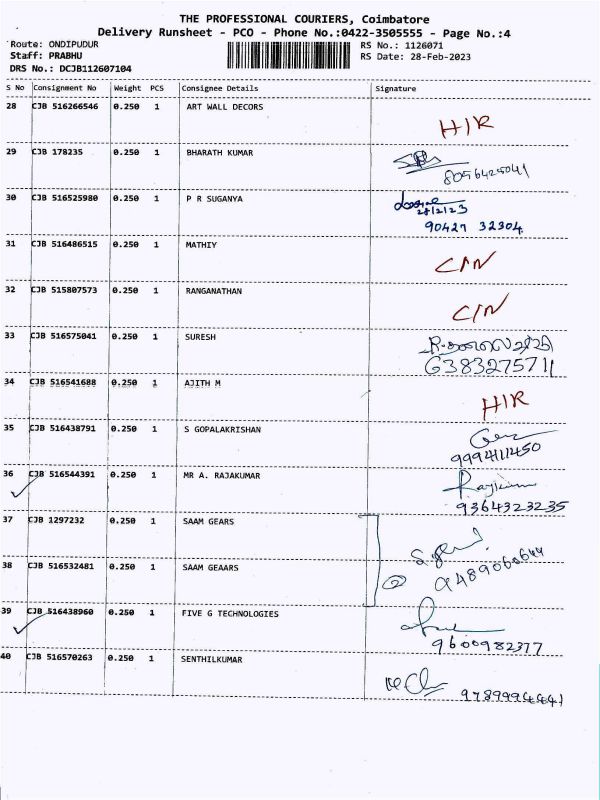 THE PROFESSIONAL COURIERS, Coimbatore
Delivery Runsheet - PCO - Phone No.:0422-3505555 - Page No.:4
Route: ONDIPUDUR RS No.: 1126071
Staff: PRABHU RS Date: 28-Feb-2023
DRS No.: DCJB112607104
S No Consignment No Weight PCS Consignee Details Signature
28 CJB 516266546 0.250 1 ART WALL DECORS
H/R
29 CJB 178235 0.250 1 BHARATH KUMAR
8056425041
30 CJB 516525980 0.250 1 P R SUGANYA
28/2/23
90427 32304
31 CJB 516486515 0.250 1 MATHIY
C/N
32 CJB 515807573 0.250 1 RANGANATHAN
C/N
33 CJB 516575041 0.250 1 SURESH
6383275711
34 CJB 516541688 0.250 1 AJITH M
H/R
35 CJB 516438791 0.250 1 S GOPALAKRISHAN
9994111450
36 CJB 516544391 0.250 1 MR A. RAJAKUMAR
9364323235
37 CJB 1297232 0.250 1 SAAM GEARS
38 CJB 516532481 0.250 1 SAAM GEAARS
2 9489060644
39 CJB 516438960 0.250 1 FIVE G TECHNOLOGIES
9600982377
40 CJB 516570263 0.250 1 SENTHILKUMAR
9789994441